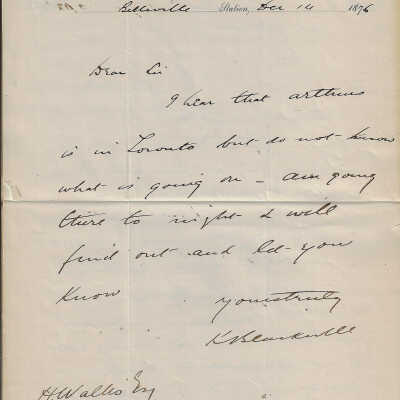 Belleville Station, Dec 14 1876
Dear Sir
I hear that arthurs
is in Toronto but do not know
what is going on – am going
there to night & will
find out and let you
know
yours truly
H Wallis Esq